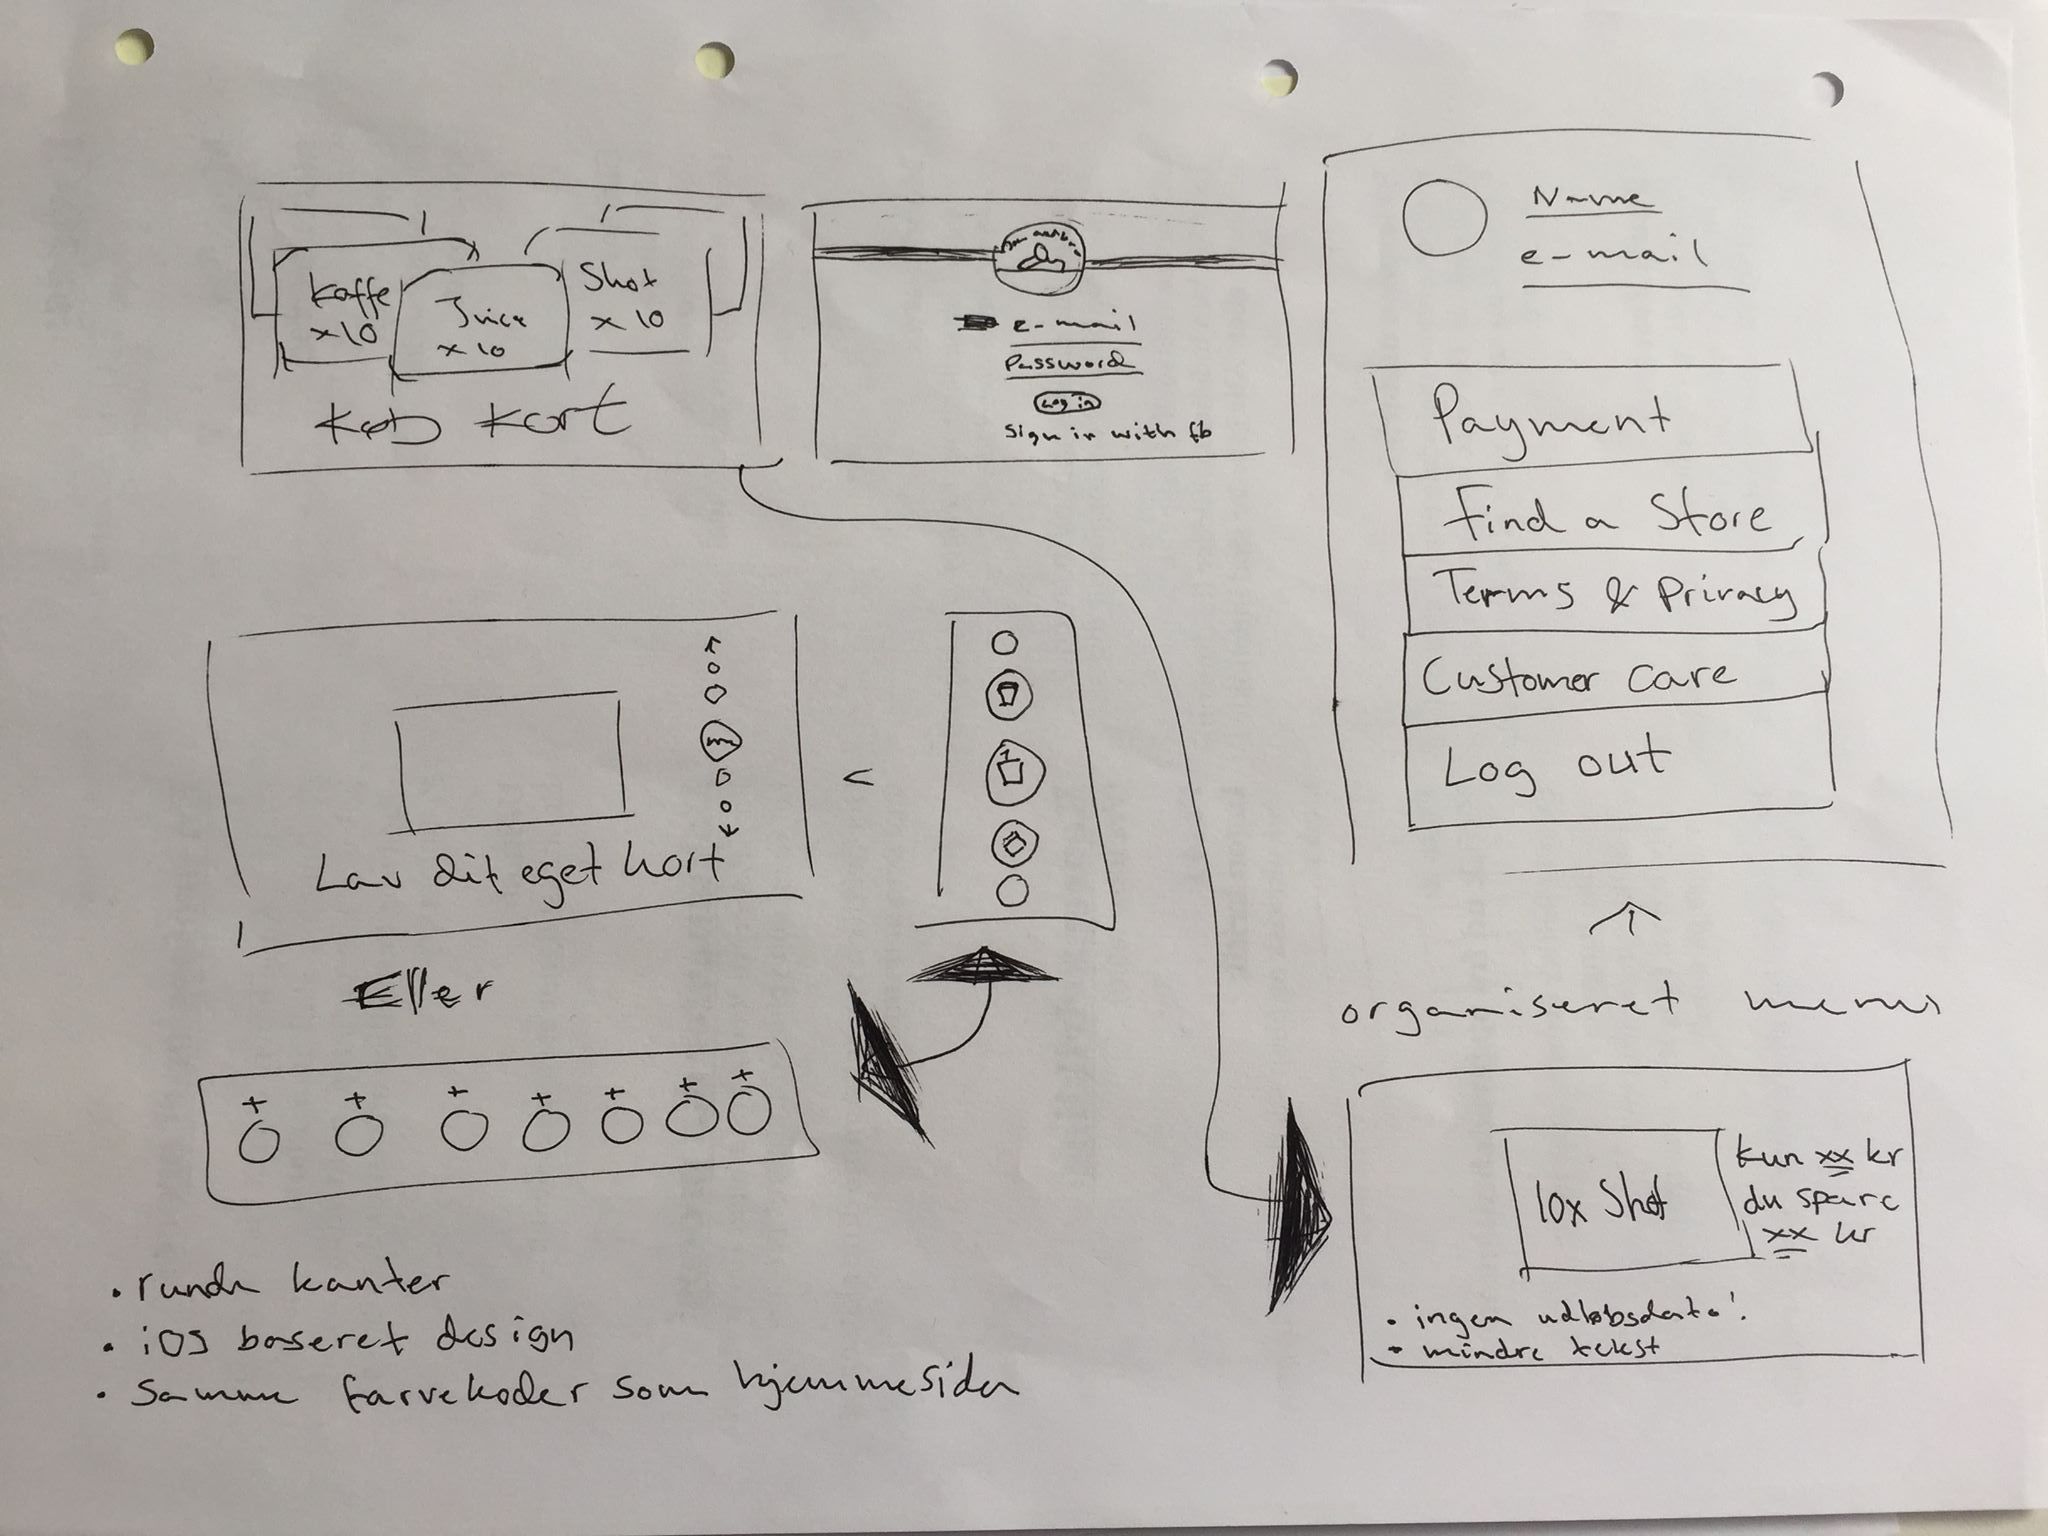 Kaffe
x10
Juice
x10
Shot
x10
Køb kort
e-mail
Password
Log in
Sign in with fb
Name
e-mail
Payment
Find a Store
Terms & Privacy
Customer care
Log out
organiseret menu
Lav dit eget kort
Eller
10x Shot
kun xx kr
du spare
xx kr
• ingen udløbsdato!
• mindre tekst
• runde kanter
• iOS baseret design
• Samme farvekoder som hjemmesiden